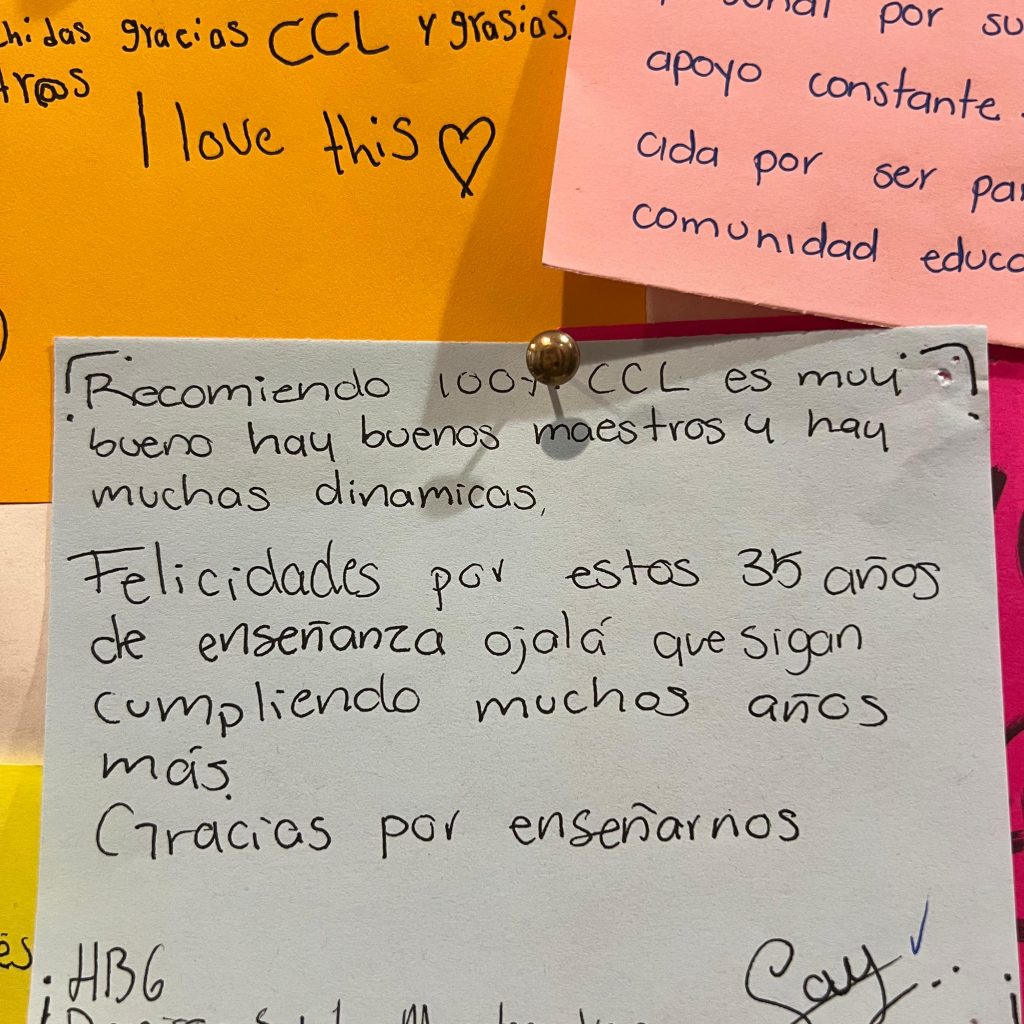 gracias CCL y grasias.
I love this
por su
apoyo constante.
cida por ser
comunidad
Recomiendo 100% CCL es muy
bueno hay buenos maestros y hay
muchas dinamicas,
Felicidades por estos 35 años
de enseñanza ojalá que sigan
cumpliendo muchos años
más.
Gracias por enseñarnos
HBG